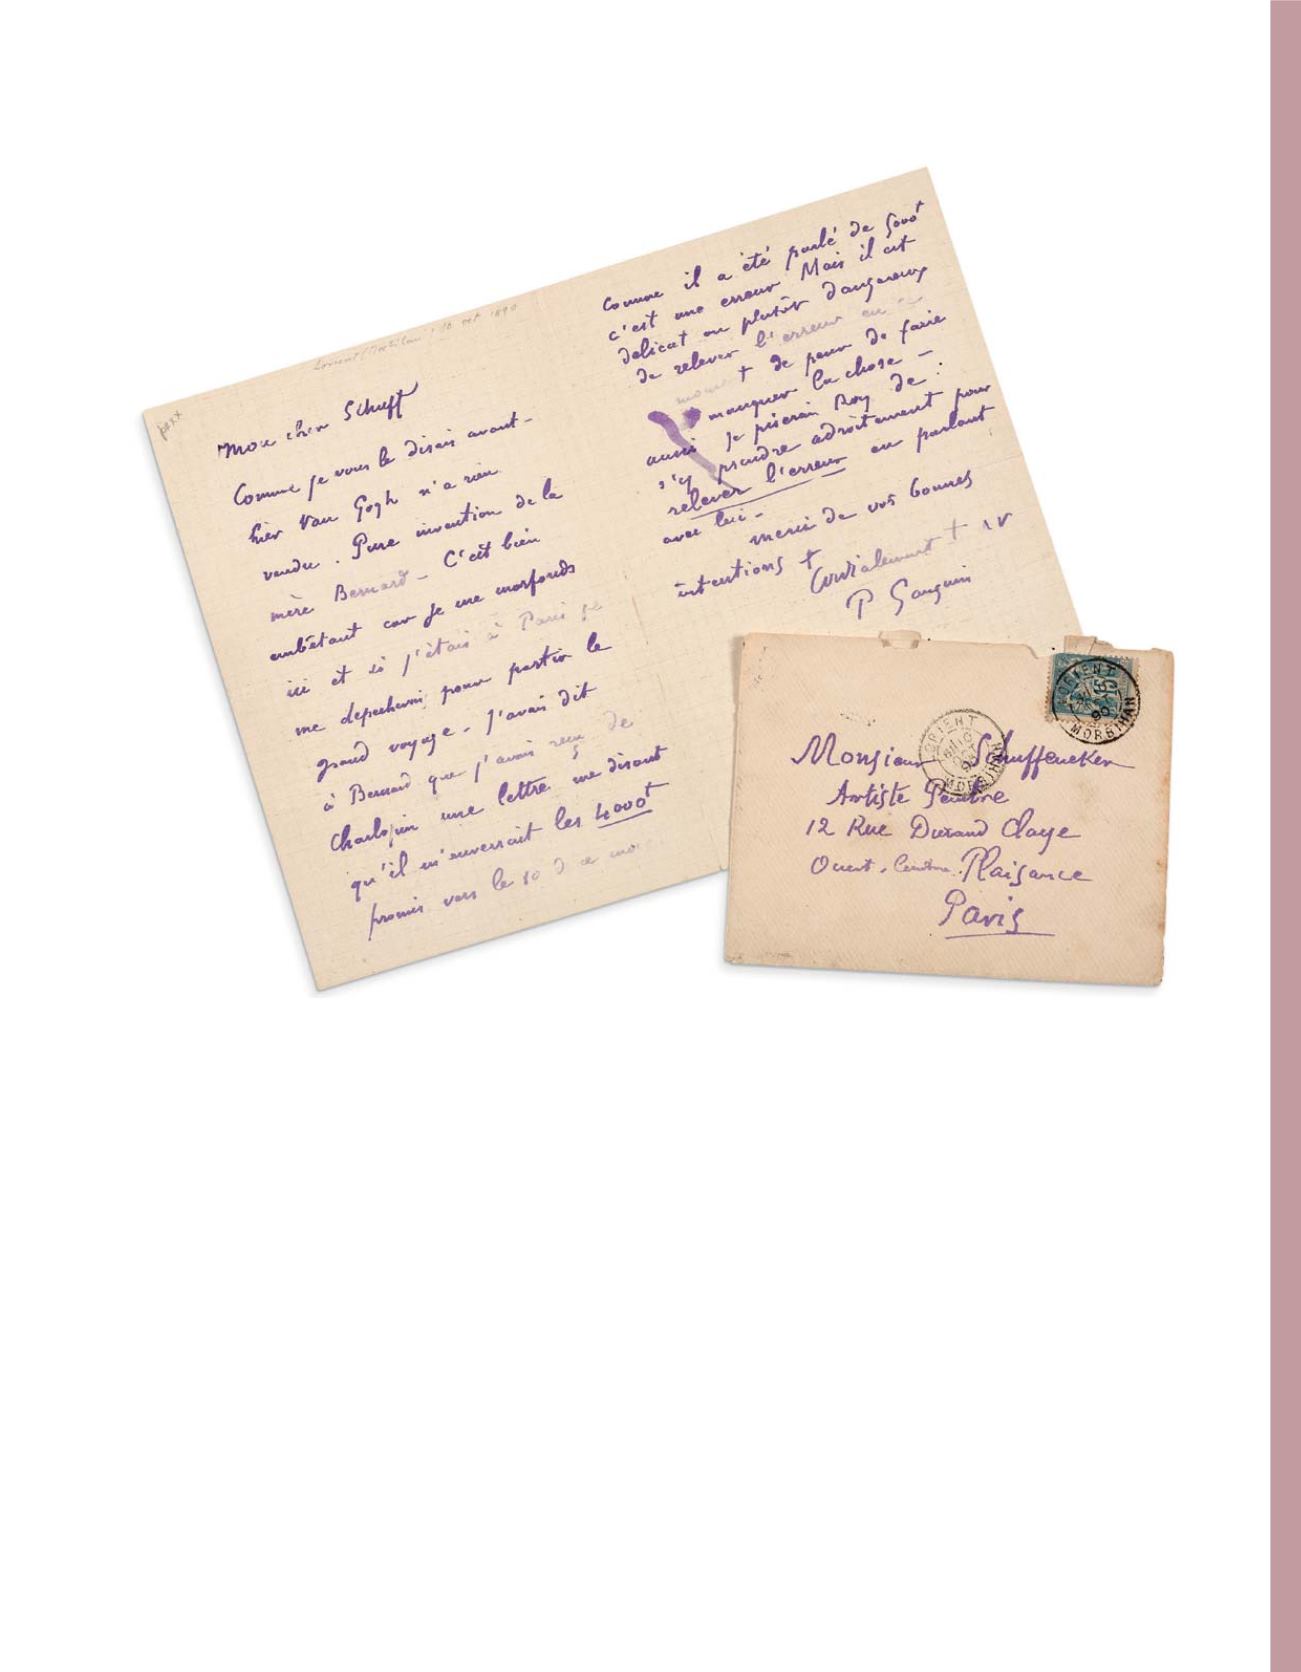 Lorient (Morbihan) 10 oct 1890
Mon cher Schuff
Comme je vous le disais avant-
hier Van Gogh n'a rien
vendu. Pure invention de la
mère Bernard - C'est bien
embêtant car je me morfonds
ici et si j'étais à Paris je
me depecherais pour partir le
grand voyage - J'avais dit
à Bernard que j'avais reçu de
Charlopin une lettre me disant
qu'il m'enverrait les 4000f
promis vers le 10 de ce mois.
Comme il a été parlé de 5000f
c'est une erreur Mais il est
délicat ou plutôt dangereux
de relever l'erreur en ce
moment de peur de faire
manquer la chose -
aussi je prierai Roy de
s'y prendre adroitement pour
relever l'erreur en parlant
avec lui -
merci de vos bonnes
intentions +
Cordialement +
P Gauguin
LORIENT
MORBIHAN
LORIENT
15
90
MORBIHAN
Monsieur Schuffeneker
Artiste Peintre
12 Rue Durand Claye
Ouest. Ceinture. Plaisance
Paris